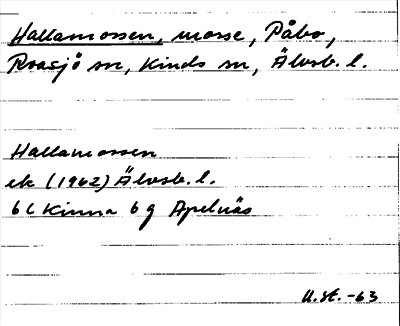 Hallamossen, mosse, Påbo,
Roasjö sn, Kinds sn, Älvsb. l.
Hallamossen
ek (1962) Älvsb. l.
6 C Kinna 6 g Apelnäs
U.st. -63